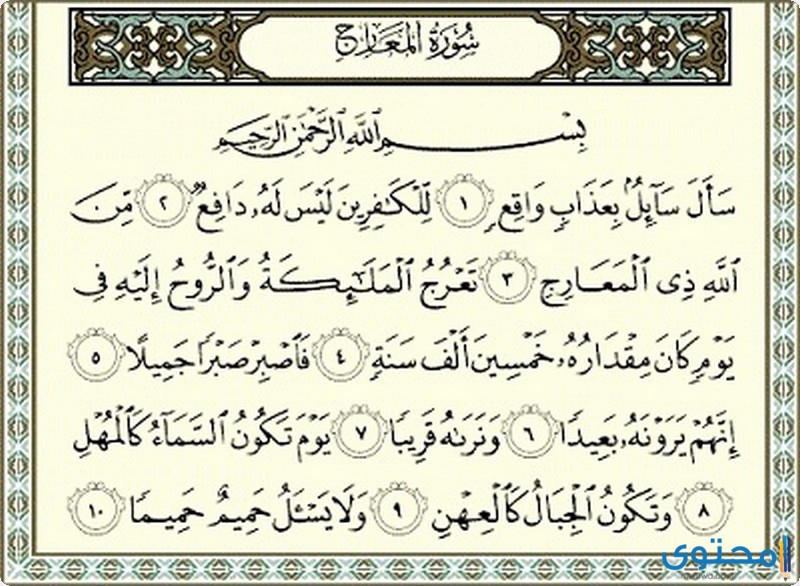 سُورَةُ الْمَعَارِجِ
بِسْمِ ٱللَّهِ ٱلرَّحْمَٰنِ ٱلرَّحِيمِ
سَأَلَ سَآئِلُۢ بِعَذَابٍ وَاقِعٍ ١ لِّلْكَٰفِرِينَ لَيْسَ لَهُۥ دَافِعٌ ٢ مِّنَ
ٱللَّهِ ذِى ٱلْمَعَارِجِ ٣ تَعْرُجُ ٱلْمَلَٰٓئِكَةُ وَٱلرُّوحُ إِلَيْهِ فِى
يَوْمٍ كَانَ مِقْدَارُهُۥ خَمْسِينَ أَلْفَ سَنَةٍ ٤ فَٱصْبِرْ صَبْرًا جَمِيلًا ٥
إِنَّهُمْ يَرَوْنَهُۥ بَعِيدًا ٦ وَنَرَىٰهُ قَرِيبًا ٧ يَوْمَ تَكُونُ ٱلسَّمَآءُ كَٱلْمُهْلِ
٨ وَتَكُونُ ٱلْجِبَالُ كَٱلْعِهْنِ ٩ وَلَا يَسْـَٔلُ حَمِيمٌ حَمِيمًا ١٠
محتوى